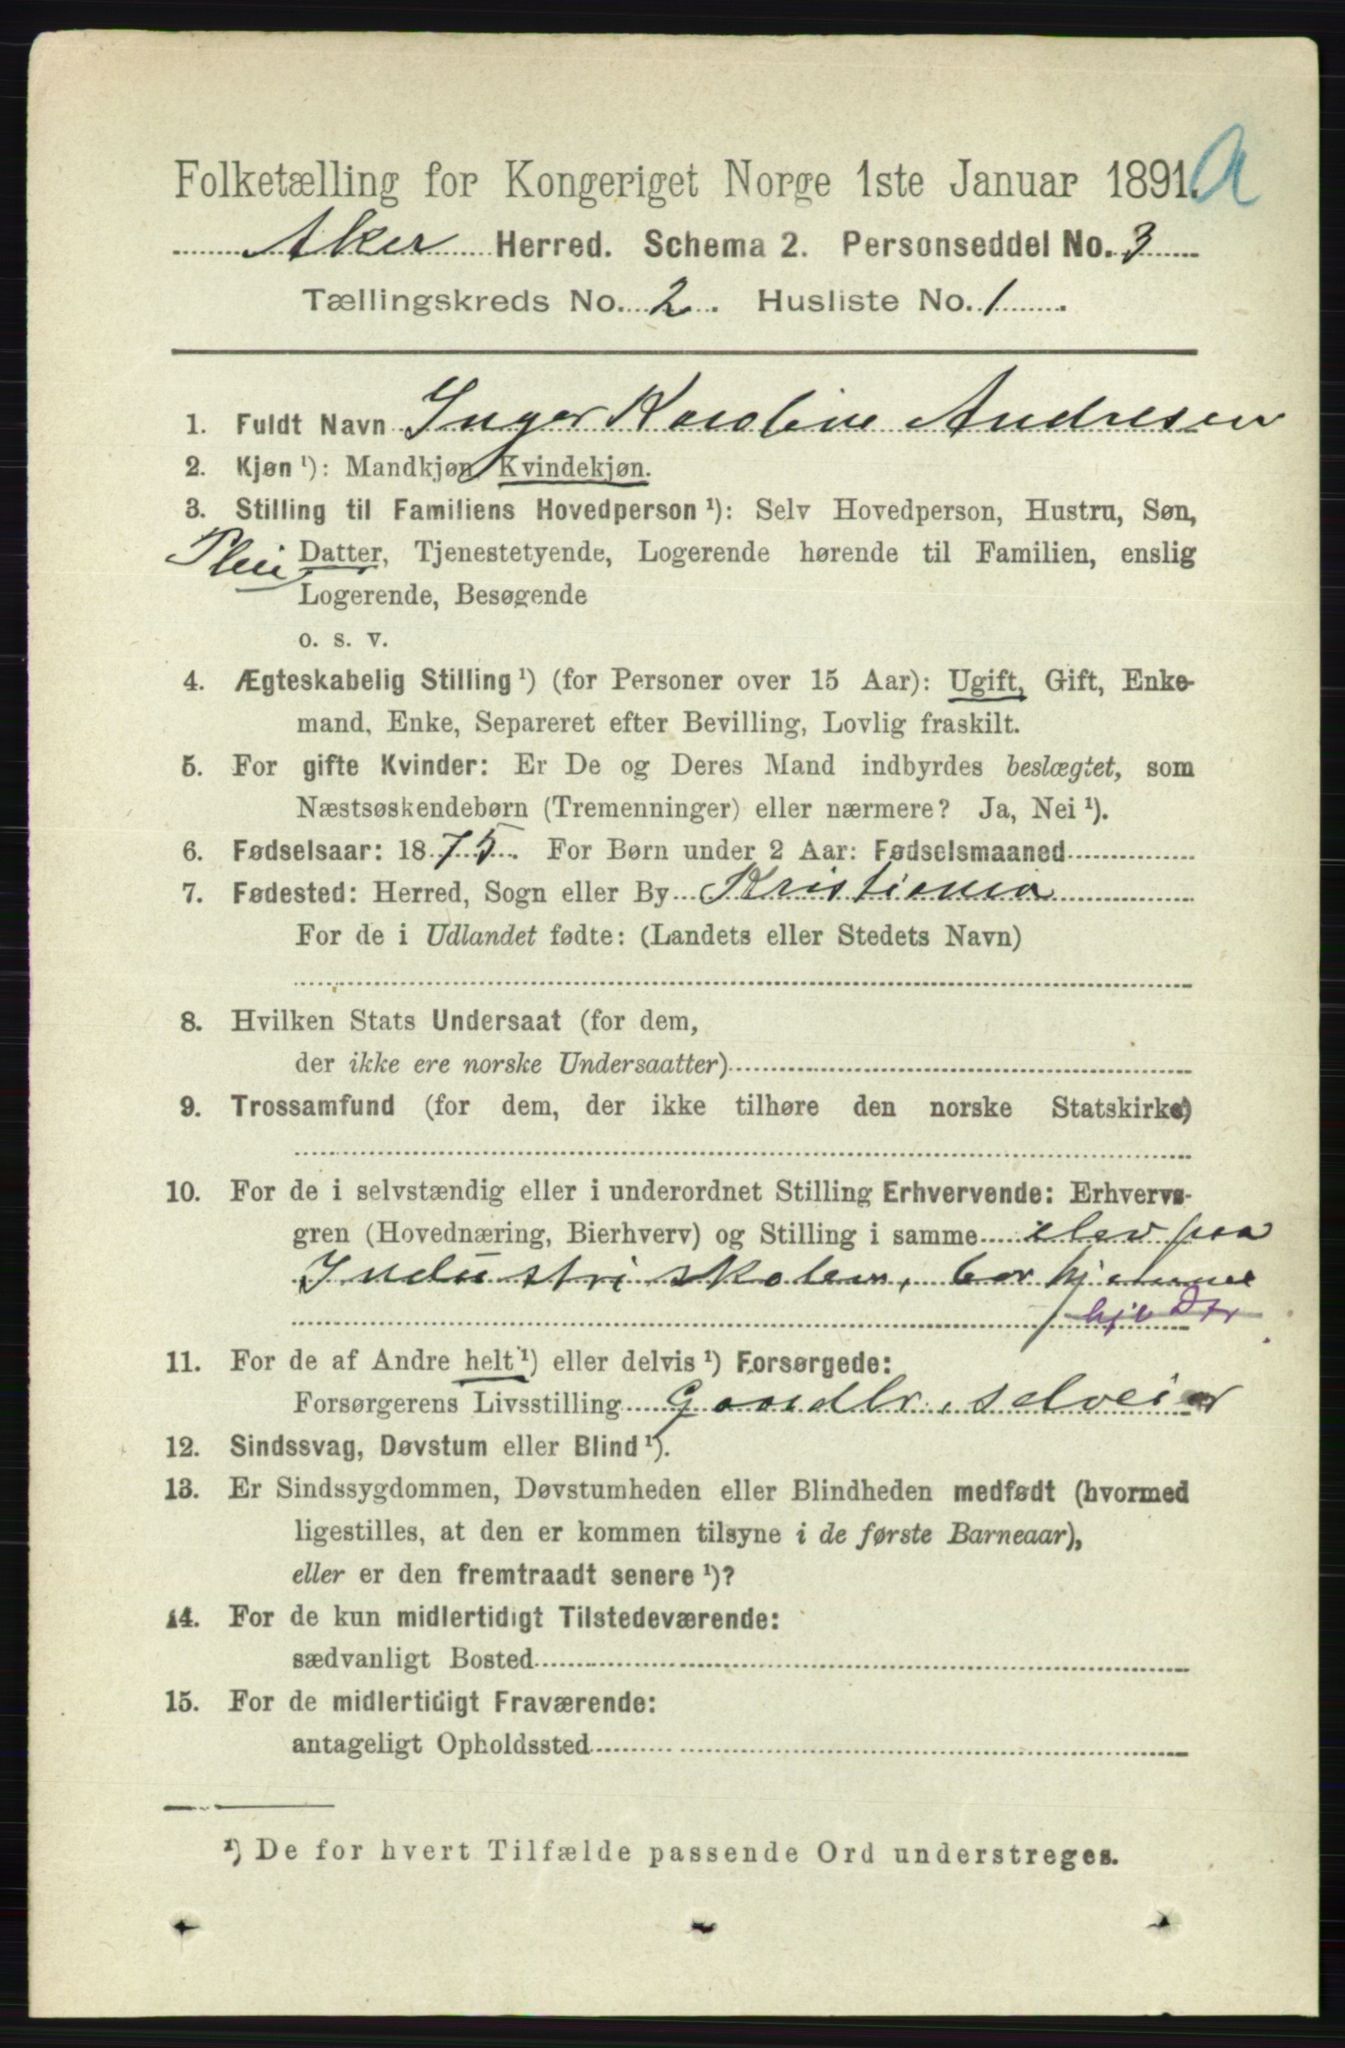 Folketælling for Kongeriget Norge 1ste Januar 1891. A
Aker Herred. Schema 2. Personseddel No. 3
Tællingskreds No. 2. Husliste No. 1.
1. Fuldt Navn Inger Karoline Andresen
2. Kjøn ¹): Mandkjøn, Kvindekjøn.
3. Stilling til Familiens Hovedperson ¹): Selv Hovedperson, Hustru, Søn,
Pleie Datter, Tjenestetyende, Logerende hørende til Familien, enslig
Logerende, Besøgende
o. s. v.
4. Ægteskabelig Stilling ¹) (for Personer over 15 Aar): Ugift, Gift, Enke-
mand, Enke, Separeret efter Bevilling, Lovlig fraskilt.
5. For gifte Kvinder: Er De og Deres Mand indbyrdes beslægtet, som
Næstsøskendebørn (Tremenninger) eller nærmere? Ja, Nei ¹).
6. Fødselsaar: 1875. For Børn under 2 Aar: Fødselsmaaned
7. Fødested: Herred, Sogn eller By Kristiania
For de i Udlandet fødte: (Landets eller Stedets Navn)
8. Hvilken Stats Undersaat (for dem,
der ikke ere norske Undersaatter)
9. Trossamfund (for dem, der ikke tilhøre den norske Statskirke)
10. For de i selvstændig eller i underordnet Stilling Erhvervende: Erhvervs-
gren (Hovednæring, Bierhverv) og Stilling i samme elev paa
Industriskolen, bor hjemme
hjv Dtr
11. For de af Andre helt ¹) eller delvis ¹) Forsørgede:
Forsørgerens Livsstilling Gaardbr., selveier
12. Sindssvag, Døvstum eller Blind ¹).
13. Er Sindssygdommen, Døvstumheden eller Blindheden medfødt (hvormed
ligestilles, at den er kommen tilsyne i de første Barneaar),
eller er den fremtraadt senere ¹)?
14. For de kun midlertidigt Tilstedeværende:
sædvanligt Bosted
15. For de midlertidigt Fraværende:
antageligt Opholdssted
¹) De for hvert Tilfælde passende Ord understreges.